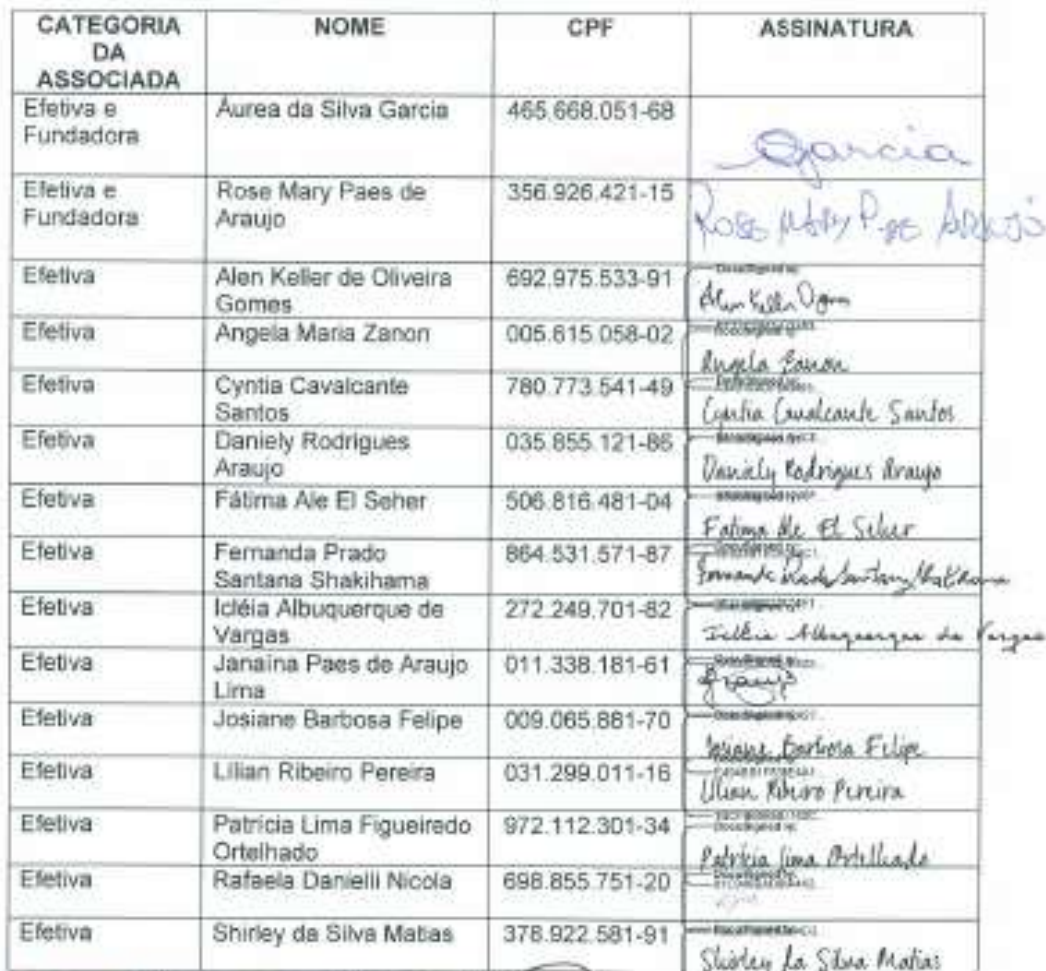 CATEGORIA DA ASSOCIADA NOME CPF ASSINATURA
Efetiva e Fundadora Áurea da Silva Garcia 465.668.051-68 Garcia
Efetiva e Fundadora Rose Mary Paes de Araujo 356.926.421-15 ROSE MARY P. DE ARAUJO
Efetiva Alen Keller de Oliveira Gomes 692.975.533-91
Efetiva Angela Maria Zanon 005.615.058-02 Angela Zanon
Efetiva Cyntia Cavalcante Santos 780.773.541-49 Cyntia Cavalcante Santos
Efetiva Daniely Rodrigues Araujo 035.855.121-86 Daniely Rodrigues Araujo
Efetiva Fátima Ale El Seher 506.816.481-04 Fatima Ale El Seher
Efetiva Fernanda Prado Santana Shakihama 864.531.571-87
Efetiva Icléia Albuquerque de Vargas 272.249.701-82 Icléia Albuquerque de Vargas
Efetiva Janaína Paes de Araujo Lima 011.338.181-61 Araujo
Efetiva Josiane Barbosa Felipe 009.065.881-70 Josiane Barbosa Felipe
Efetiva Lilian Ribeiro Pereira 031.299.011-16 Lilian Ribeiro Pereira
Efetiva Patricia Lima Figueiredo Ortelhado 972.112.301-34 Patrícia Lima Ortelhado
Efetiva Rafaela Danielli Nicola 698.855.751-20
Efetiva Shirley da Silva Matias 378.922.581-91 Shirley da Silva Matias